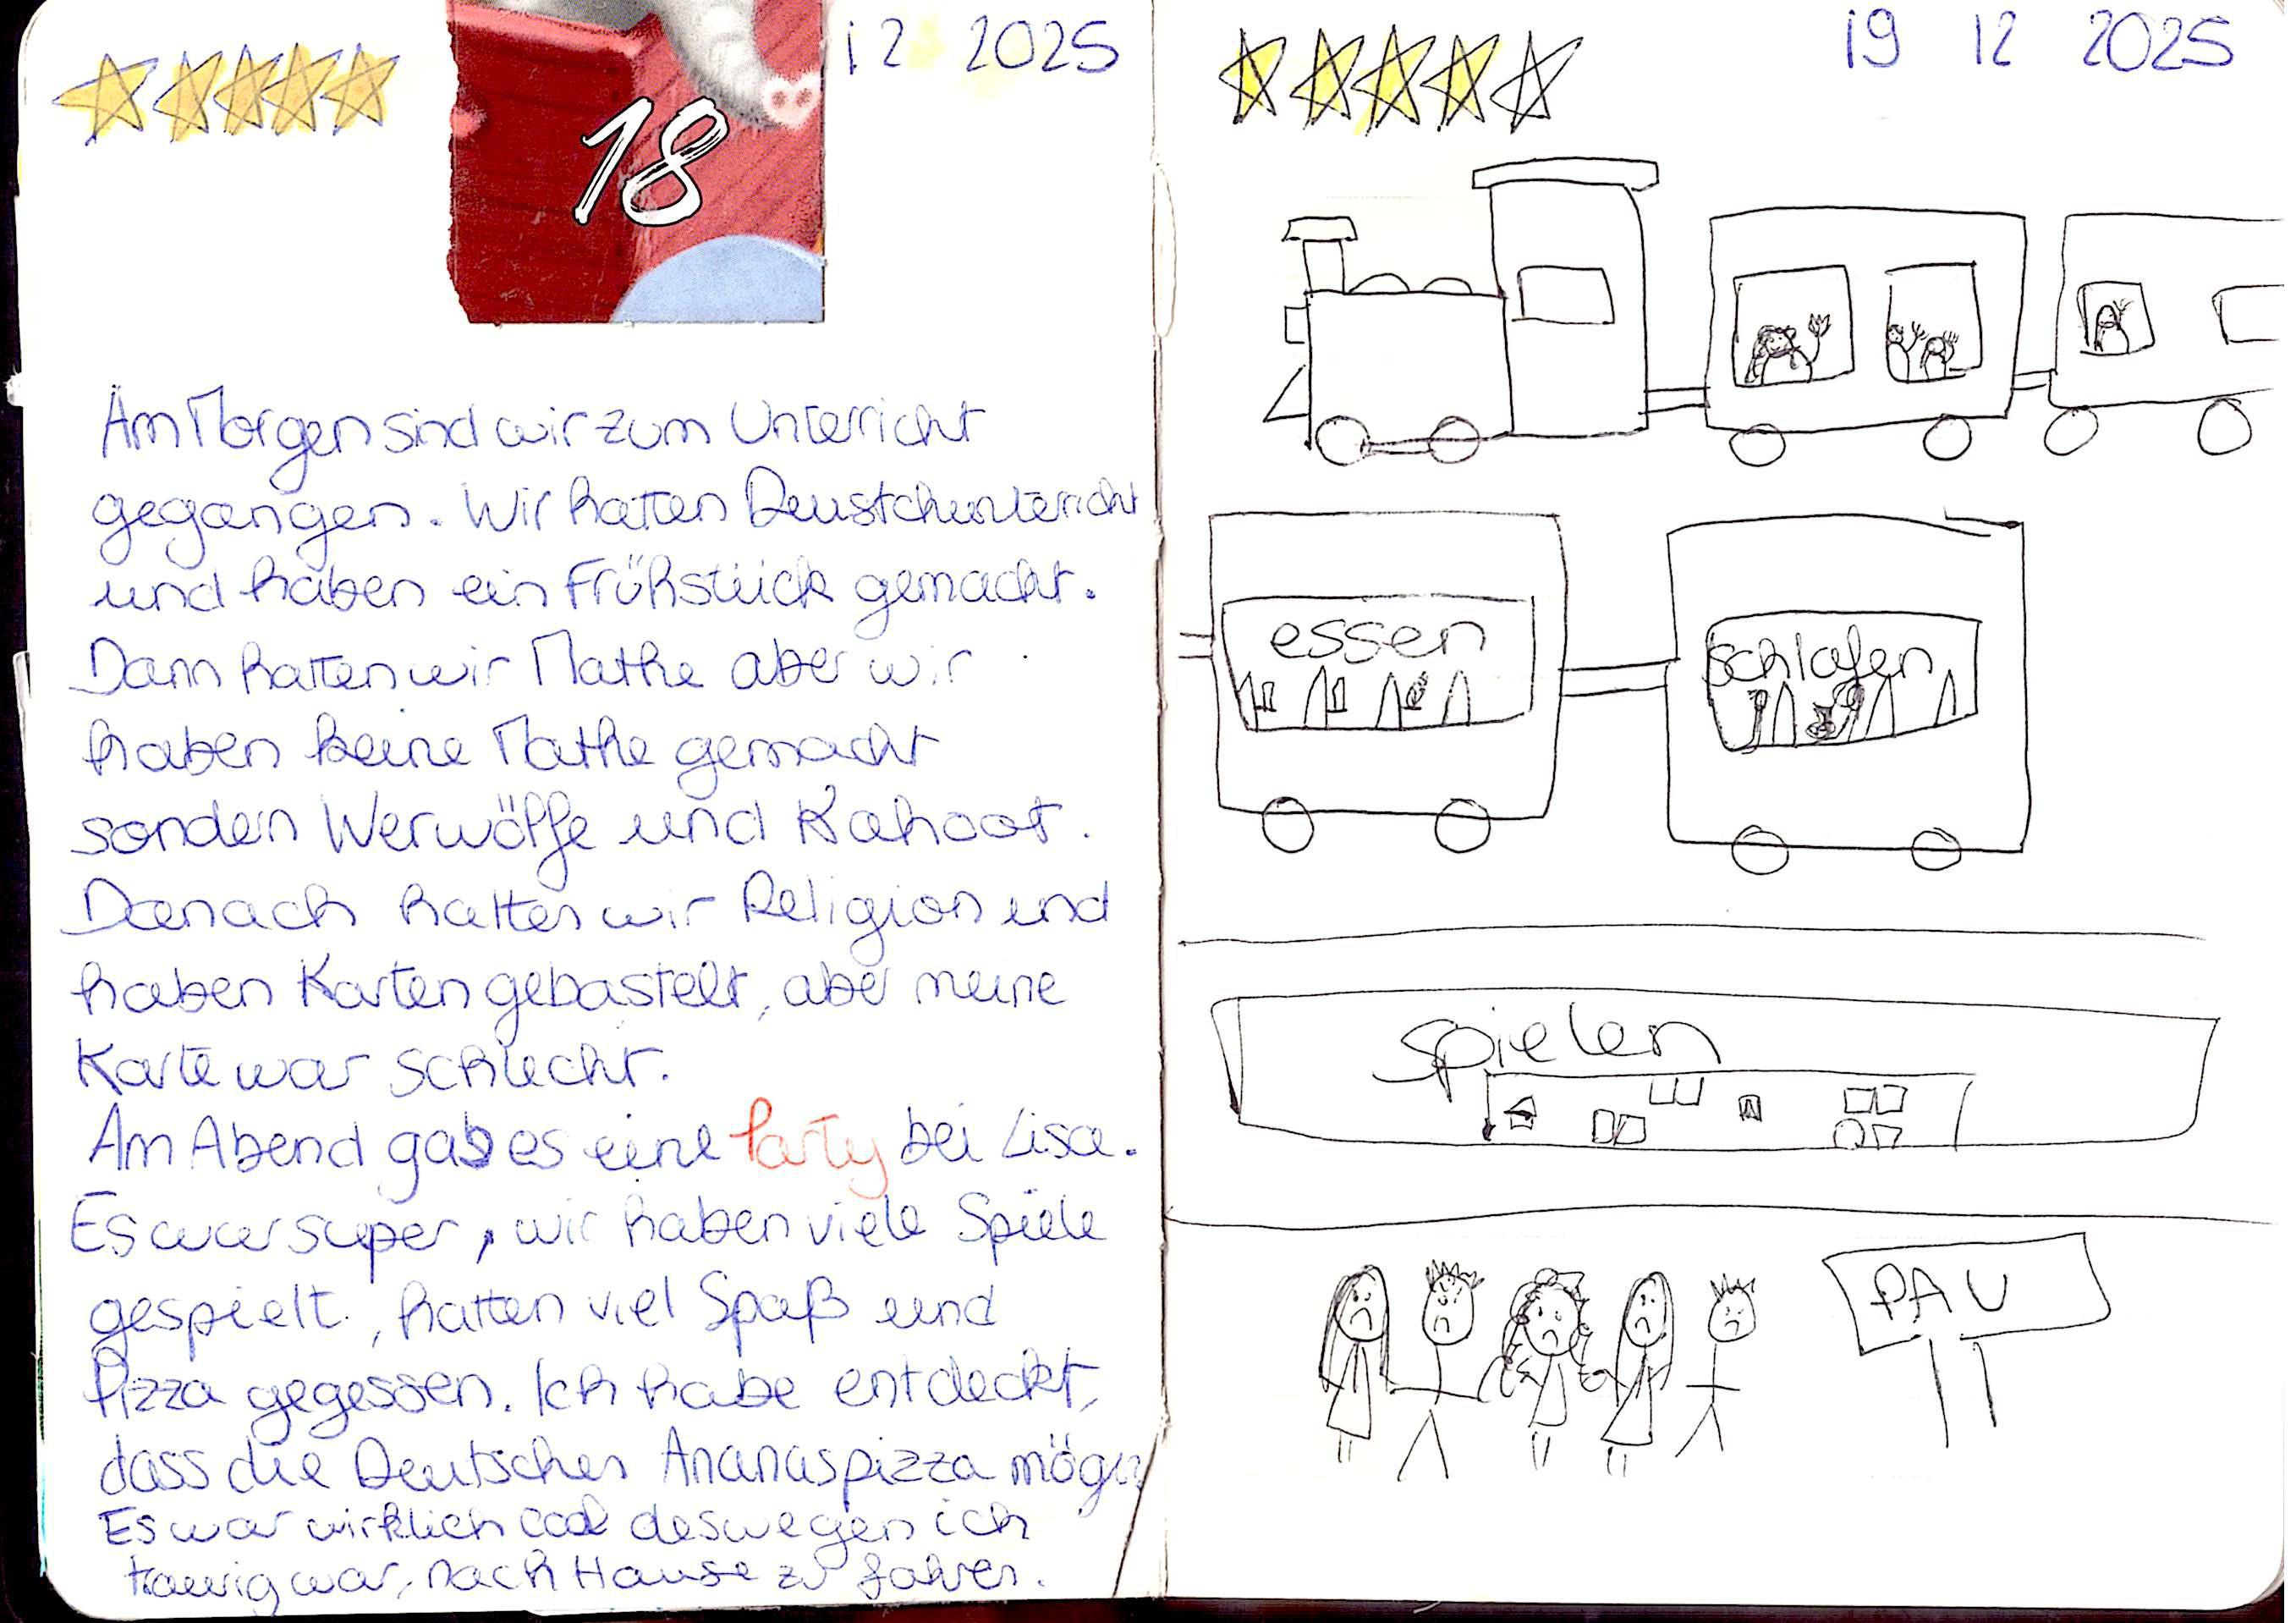 18 12 2025
Am Morgen sind wir zum Unterricht
gegangen. Wir hatten Deustchunterricht
und haben ein Frühstück gemacht.
Dann hatten wir Mathe aber wir
haben keine Mathe gemacht
sondern Werwölfe und Kahoot.
Danach hatten wir Religion und
haben Karten gebastelt, aber meine
Karte war schlecht.
Am Abend gab es eine Party bei Lisa.
Es war super, wir haben viele Spiele
gespielt, hatten viel Spaß und
Pizza gegessen. Ich habe entdeckt,
dass die Deutschen Ananaspizza mögen
Es war wirklich cool deswegen ich
traurig war, nach Hause zu fahren.
19 12 2025
essen
schlafen
spielen
PAU